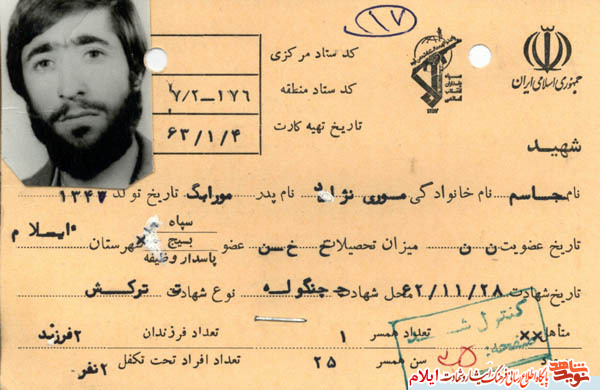 ۱۷
کد ستاد مرکزی
جمهوری اسلامی ایران
کد ستاد منطقه ۷/۲-۱۷۶
تاریخ تهیه کارت ۶۳/۱/۴
شهید
نام جاسم نام خانوادگی موری نژاد نام پدر مورابگ تاریخ تولد ۱۳۴۷
تاریخ عضویت ن ن میزان تحصیلات ع خ س عضو سپاه بسیج پاسدار وظیفه شهرستان ایلام
تاریخ شهادت ۶۲/۱۱/۲۸ محل شهادت چنگوله نوع شهادت ترکش
متاهل ×× تعداد همسر ۱ تعداد فرزندان ۲فرزند
سن همسر ۲۵ تعداد افراد تحت تکفل ۲نفر
کنترل شد
پایگاه اطلاع رسانی فرهنگ ایثار و شهادت ایلام
نوید شاهد